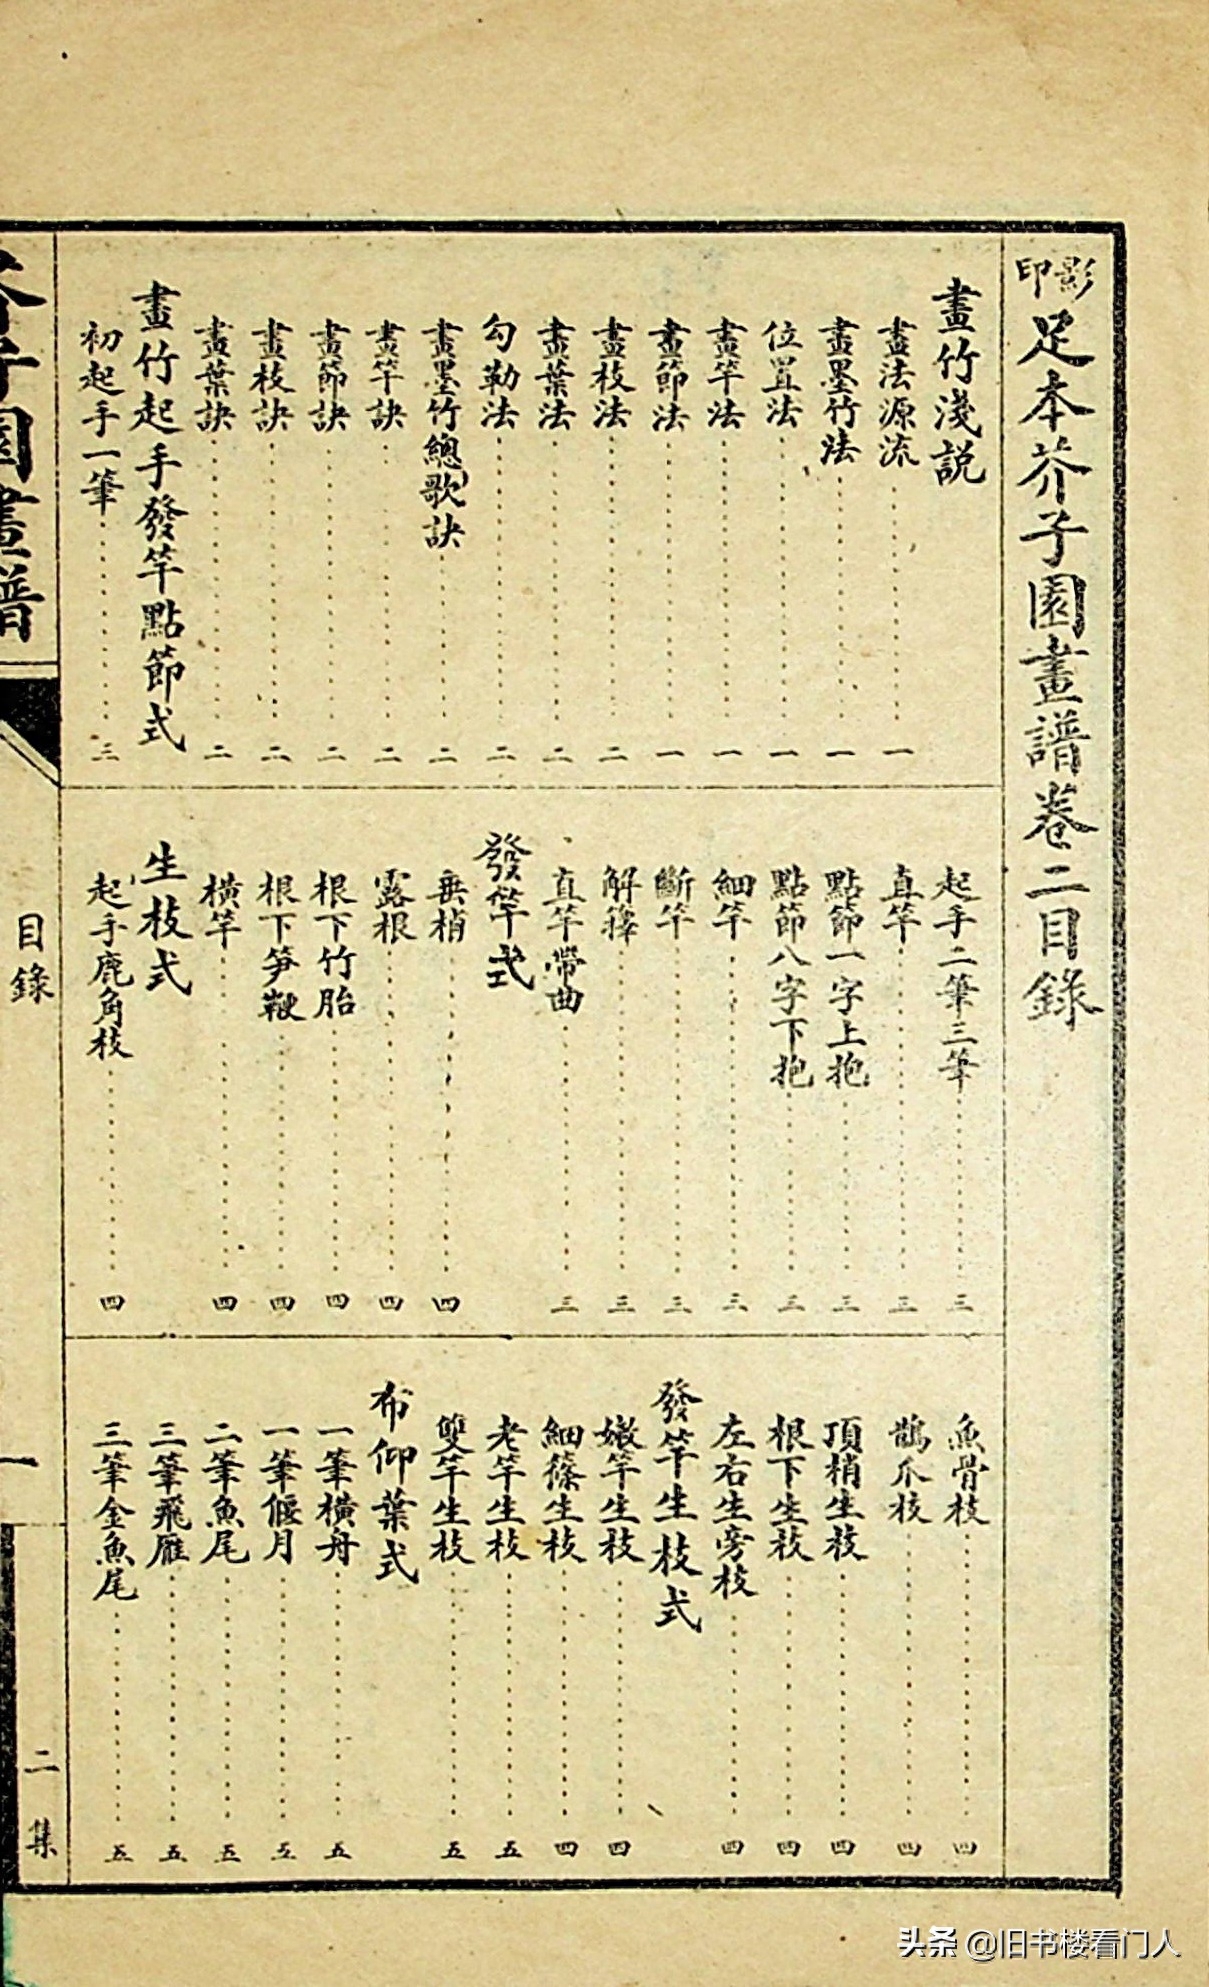 影印足本芥子園畫譜卷二目錄
畫竹淺説
畫法源流 一
畫墨竹法 一
位置法 一
畫竿法 一
畫節法 一
畫枝法 二
畫葉法 二
勾勒法 二
畫墨竹總歌訣 二
畫竿訣 二
畫節訣 二
畫枝訣 二
畫葉訣 二
畫竹起手發竿點節式
初起手一筆 三
起手二筆三筆 三
直竿 三
點節一字上抱 三
點節八字下抱 三
細竿 三
斷竿 三
解籜 三
直竿帶曲 三
發竿式
垂梢 四
露根 四
根下竹胎 四
根下笋鞭 四
橫竿 四
生枝式
起手鹿角枝 四
魚骨枝 四
鵲爪枝 四
頂梢生枝 四
根下生枝 四
左右生旁枝 四
發竿生枝式
嫩竿生枝 四
細篠生枝 四
老竿生枝 五
雙竿生枝 五
布仰葉式
一筆橫舟 五
一筆偃月 五
二筆魚尾 五
三筆飛雁 五
三筆金魚尾 五
芥子園畫譜
目錄
一
二集
头条 @旧书楼看门人